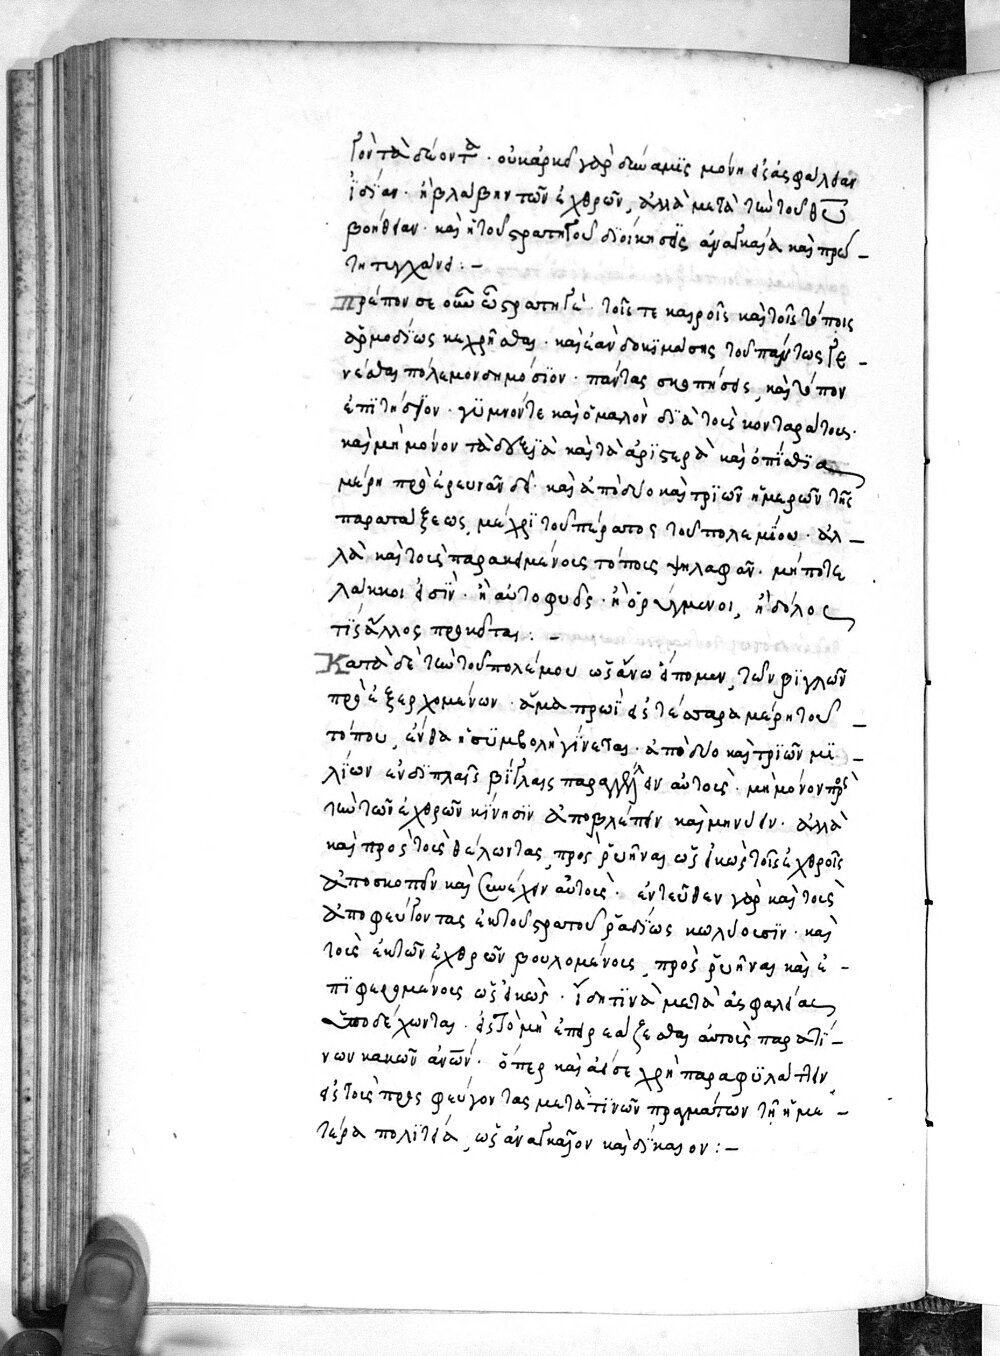 γοντα δέοντα. οὐκ ἀρκεῖ γὰρ δύναμις μόνη εἰς ἀσφάλειαν
ἰδίαν. ἢ βλάβην τῶν ἐχθρῶν, ἀλλὰ μετὰ τὴν τοῦ θυ
βοήθειαν. καὶ ἡ τοῦ στρατηγοῦ διοίκησις ἀναγκαία καὶ πρώ-
τη τυγχάνει:-
Πρέπον σε οὖν ὦ στρατηγὲ. τοῖς τε καιροῖς καὶ τοῖς τόποις
ἁρμοδίως κεχρῆσθαι. καὶ ἐὰν δοκιμάσης τοῦ πάντως γε-
νέσθαι πόλεμον δημόσιον. πάντας σκοπήσεις, καὶ τόπον
ἐπιτήδειον. γυμνόν τε καὶ ὁμαλὸν διὰ τοὺς κονταράτους.
καὶ μὴ μόνον τὰ δεξιὰ καὶ τὰ ἀριστερὰ καὶ ὀπίσθια
μέρη προερευνᾶν δεῖ. καὶ ἀπὸ δύο καὶ τριῶν ἡμερῶν τῆς
παρατάξεως, μέχρι τοῦ πέρατος τοῦ πολέμου. ἀλ-
λὰ καὶ τοὺς παρακειμένους τόπους ψηλαφᾶν. μήποτε
λάκκοι εἰσὶν. ἢ αὐτοφυεῖς. ἢ ὀρυγμένοι, ἢ δόλος
τὶς ἄλλος πρόκειται:-
Κατὰ δὲ τὴν τοῦ πολέμου ὡς ἄνω εἴπομεν, τῶν βιγλῶν
προεξερχομένων. ἅμα πρωῒ εἰς τέσσαρα μέρη τοῦ-
τόπου, ἔνθα ἡ συμβολὴ γίνεται. ἀπὸ δύο καὶ τριῶν μι-
λίων ἐν διπλαῖς βίγλαις παραγγέλλειν αὐτοὺς. μὴ μόνον πρὸς
τὴν τῶν ἐχθρῶν κίνησιν ἀποβλέπειν καὶ μηνύειν. ἀλλὰ
καὶ πρὸς τοὺς θέλωντας, προσρυῆναι ὡς εἰκὼς τοῖς ἐχθροῖς
ἀποσκοπεῖν καὶ συνέχειν αὐτοὺς. ἐντεῦθεν γὰρ καὶ τοὺς
ἀποφεύγοντας ἐκ τοῦ στρατοῦ ῥαδίως κωλύουσιν. καὶ
τοὺς ἐκ τῶν ἐχθρῶν βουλομένους, προσρυῆναι καὶ ἐ-
πιφερομένους ὡς εἰκὼς. εἴδη τινὰ μετὰ ἀσφαλείας
ὑποδέχωνται. εἰς τὸ μὴ ἐπηρεάζεσθαι αὐτοὺς παρά τι-
νων κακῶν ἀνων. ὅπερ καὶ ἀεί σε χρὴ παραφυλάττειν,
εἰς τοὺς προσφεύγοντας μετὰ τινῶν πραγμάτων τῆ ἡμε-
τέρα πολιτεία, ὡς ἀναγκαῖον καὶ δίκαιον:-